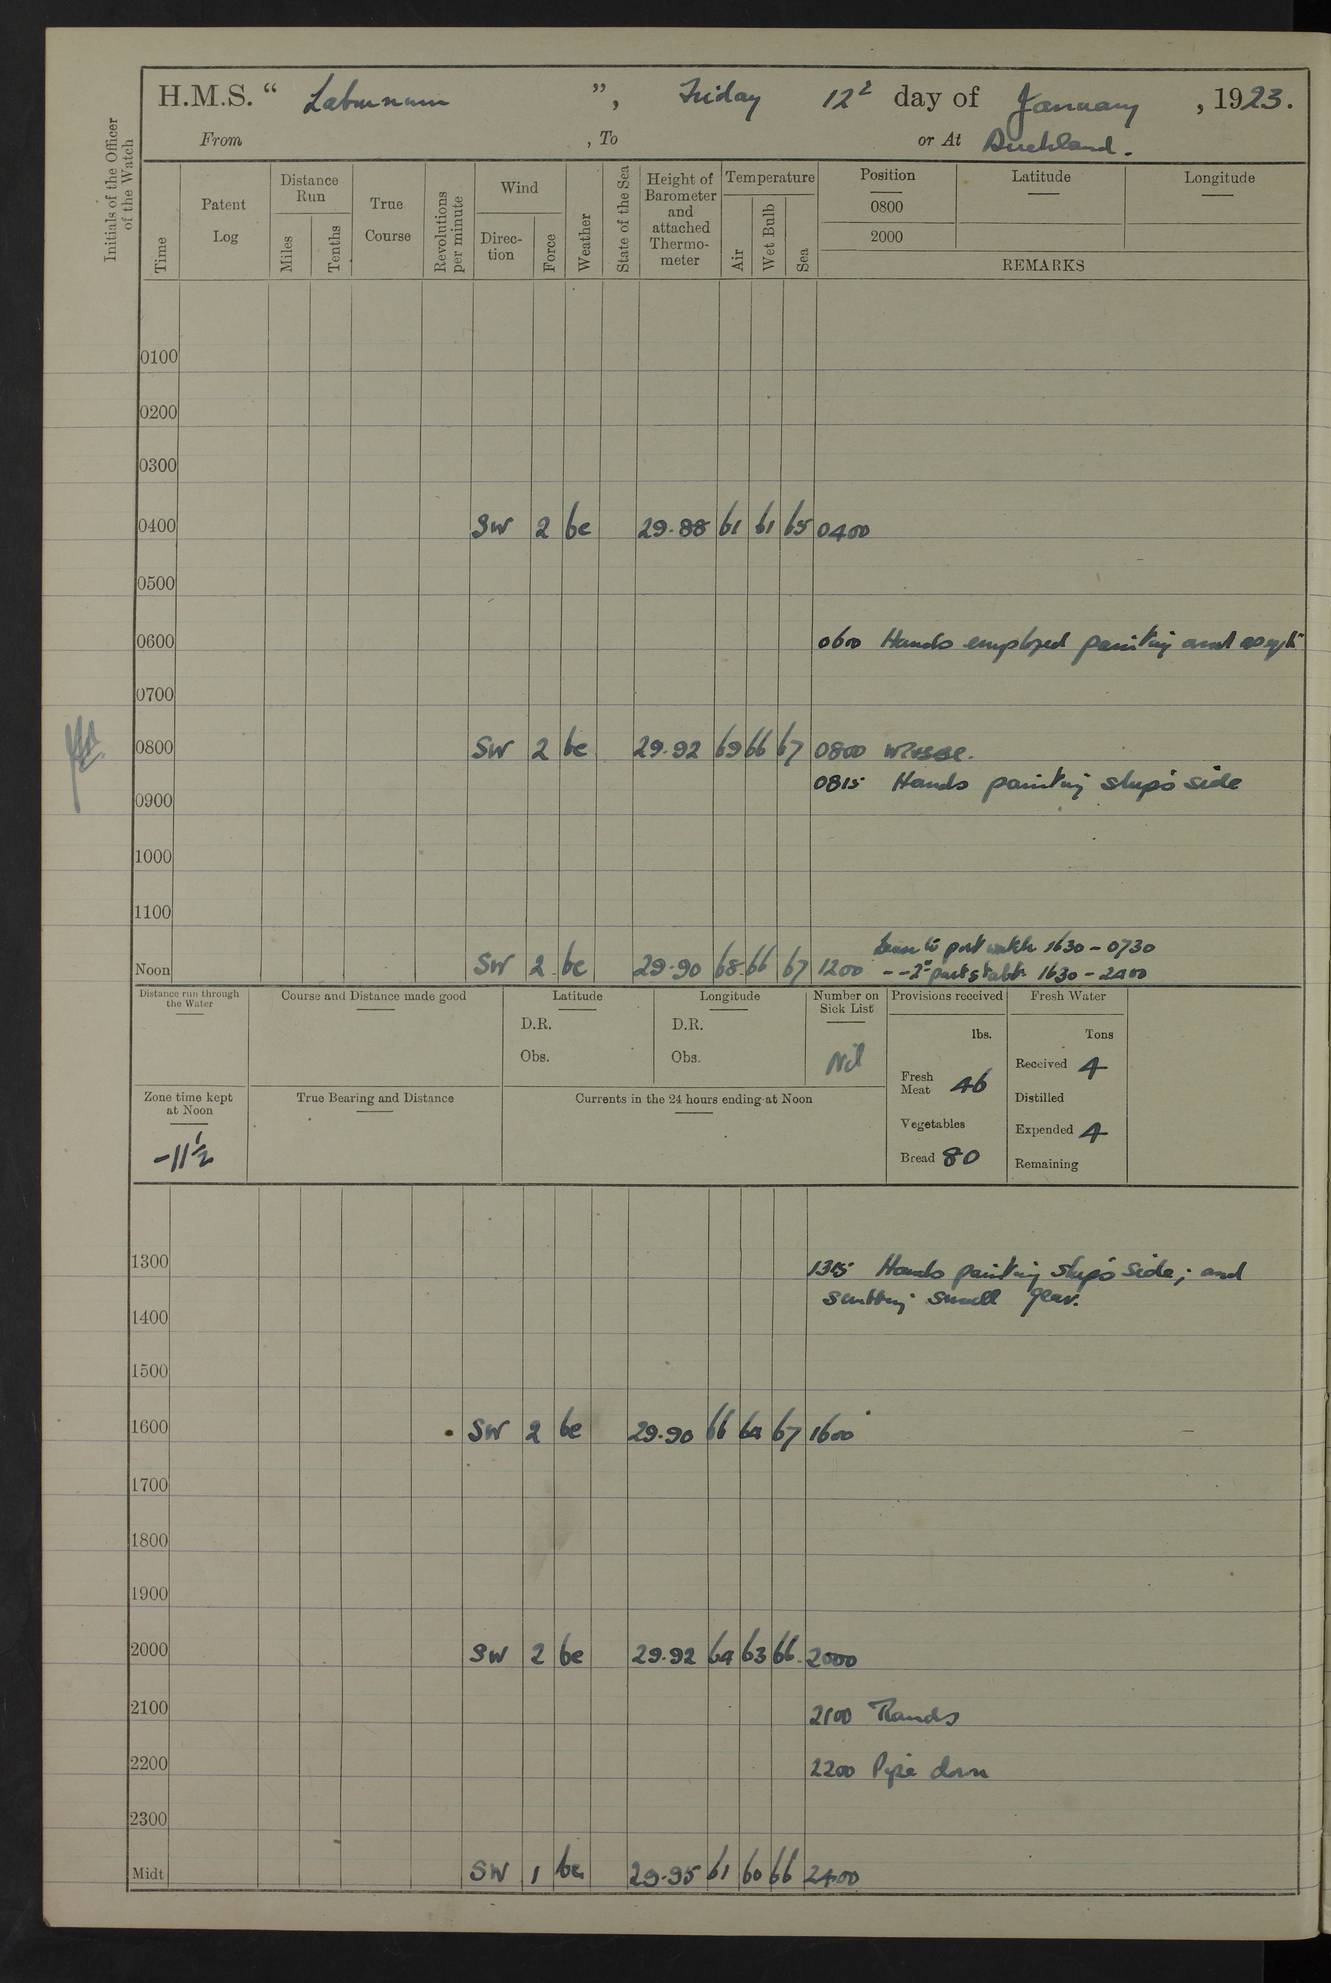 H.M.S. “ Laburnum ”, Friday 12th day of January , 1923.
From , To or At Auckland.
Initials of the Officer of the Watch
Time
Patent Log
Distance Run
Miles
Tenths
True Course
Revolutions per minute
Wind
Direc-tion
Force
Weather
State of the Sea
Height of Barometer and attached Thermo-meter
Temperature
Air
Wet Bulb
Sea
Position
0800
2000
Latitude
Longitude
REMARKS
0100
0200
0300
0400 SW 2 bc 29.88 61 61 65 0400
0500
0600 0600 Hands employed painting and
0700
0800 SW 2 bc 29.92 69 66 67 0800
0815 Hands painting ship's side
0900
1000
1100
Leave to port watch 1630 - 0730
Noon SW 2 bc 29.90 68 66 67 1200 - - 2nd part stabd 1630 - 2400
Distance run through the Water
Course and Distance made good
Latitude
D.R.
Obs.
Longitude
D.R.
Obs.
Number on Sick List
Nil
Provisions received
lbs.
Fresh Meat 46
Vegetables
Bread 80
Fresh Water
Tons
Received 4
Distilled
Expended 4
Remaining
Zone time kept at Noon
-11½
True Bearing and Distance
Currents in the 24 hours ending at Noon
1300 1315 Hands painting ship's side; and
scrubbing small gear.
1400
1500
1600 SW 2 bc 29.90 66 64 67 1600
1700
1800
1900
2000 SW 2 bc 29.92 64 63 66 2000
2100 2100 Rounds
2200 2200 Pipe down
2300
Midt SW 1 bc 29.95 61 60 66 2400